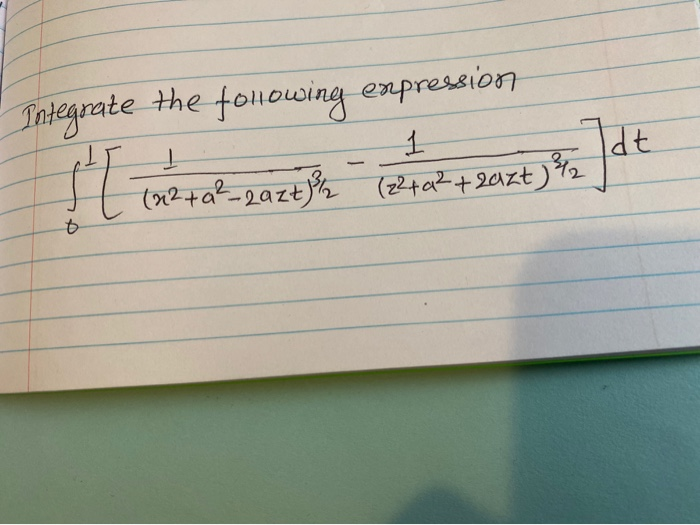 Integrate the following expression
∫₀¹ [ 1/(x²+a²-2azt)^3/2 - 1/(z²+a²+2azt)^3/2 ] dt